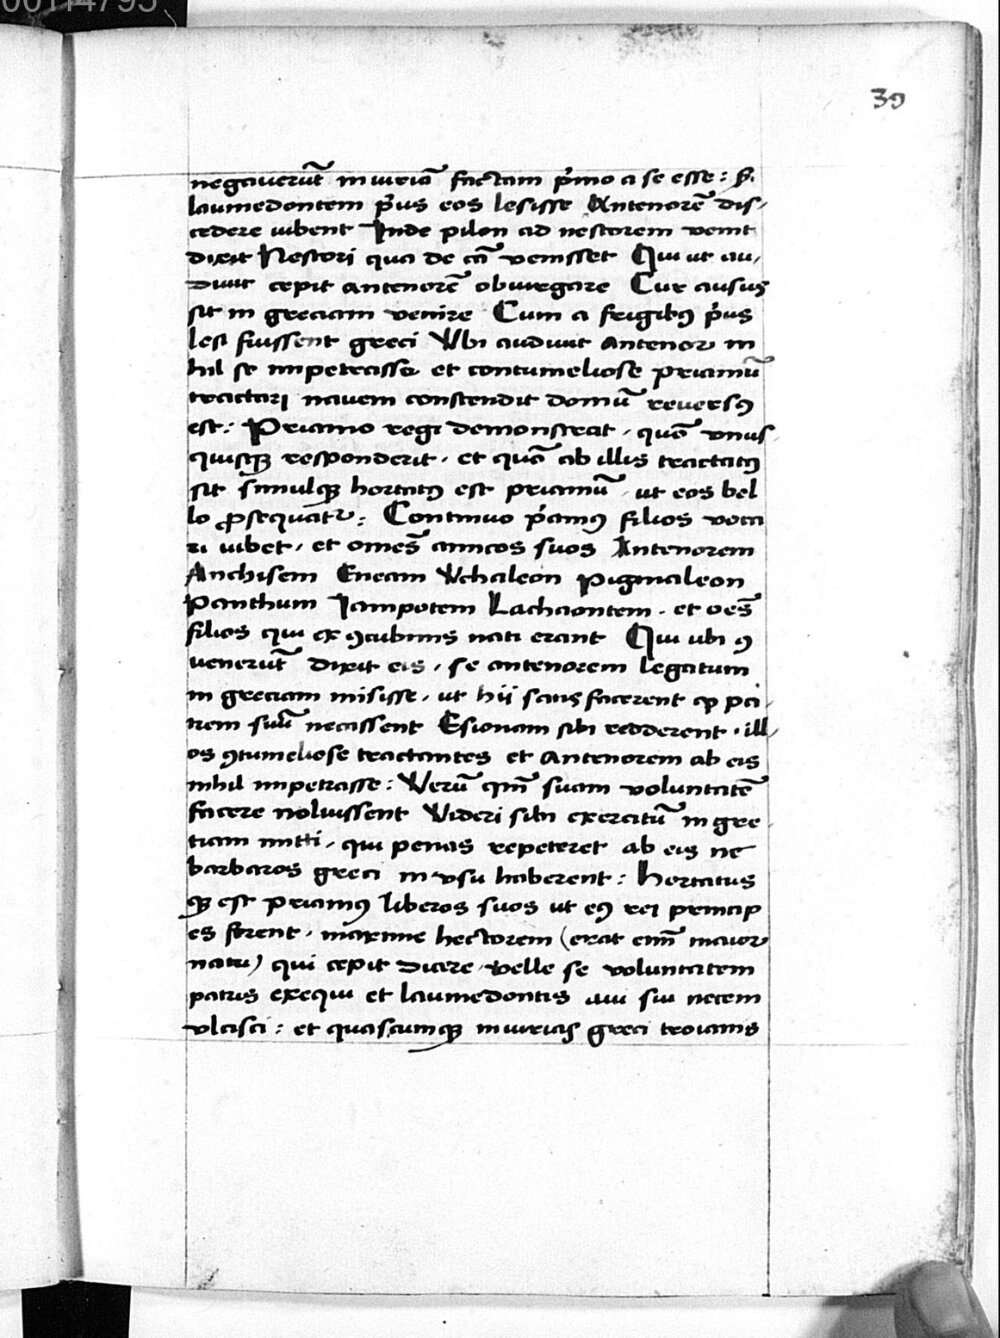 00114795
39
negauerūt iniuriā factam p̄mo a se esse : s;
laumedontem p̄us eos lesisse Antenorē dis-
cedere iubent Inde pilon ad nestorem venit
dixit Nestori qua de cā venisset Qui ut au-
diuit cepit antenorē obiurgare Cur ausus
sit in greciam venire Cum a frigibꝰ p̄us
lesi fuissent greci Vbi audiuit antenor ni
hil se impetrasse et contumeliose priamū
tractari nauem constendit domū reuersꝰ
est : Priamo regi demonstrat . quō vnus
quisqꝫ responderit . et quō ab illis tractatꝰ
sit simulqꝫ hortatꝰ est priamū . ut eos bel
lo ꝓsequat᷑ : Continuo p̄amꝰ filios voca
ri iubet . et omēs amicos suos Antenorem
Anchisem Eneam Vchaleon pigmaleon
Panthum Iampotem Lachaontem . et oēs
filios qui ex ꝯcubinis nati erant Qui ubi ꝯ
uenerūt dixit eis . se antenorem legatum
in greciam misisse . ut hij satis facerent ꝙ pa
trem suū necassent Esionam sibi redderent . ill-
os ꝯtumeliose tractantes et Antenorem ab eis
nihil impetrasse : Verū qm̄ suam voluntatē
facere noluissent Videri sibi exercitū in gre-
tiam mitti . qui penas repeteret ab eis ne
barbaros greci in vsu haberent : hortatus
qꝫ est priamꝰ liberos suos ut eꝰ rei princip
es forent . maxime hectorem (erat eim̄ maior
natu) qui cepit dicere velle se voluntatem
patris exequi et laumedontis aui sui necem
vlcisci : et quascumqꝫ iniurias greci troianis